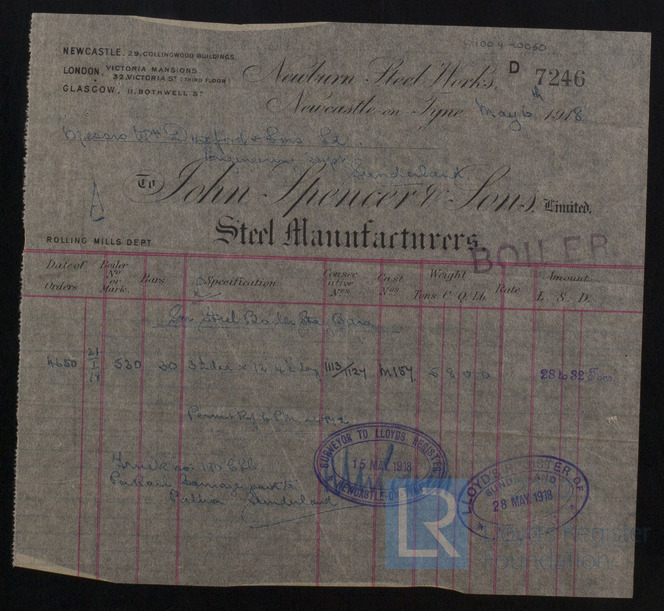 NEWCASTLE. 29, COLLINGWOOD BUILDINGS.
LONDON. VICTORIA MANSIONS
32, VICTORIA ST (THIRD FLOOR)
GLASGOW. 11, BOTHWELL ST
Newburn Steel Works,
D 7246
Newcastle on Tyne May 6th 1918
Messrs Wm Doxford & Sons Ld.
Engineering Dept
Sunderland
To John Spencer & Sons, Limited,
Steel Manufacturers.
ROLLING MILLS DEPT
BOILER
Date of Orders
Boiler No or Mark
Bars
Specification
Consecutive Nos
Cast Nos
Weight
Tons C Q Lb
Rate
Amount
L S. D.
Steel Boiler Stay Bars
4650 530 20 1113/1127 M157 5 8 0 0 28 to 32 Tons
Sunderland
SURVEYOR TO LLOYDS REGISTER
15 MAY 1918
NEWCASTLE ON TYNE
LLOYD'S REGISTER OF
SUNDERLAND
28 MAY 1918
LR
Lloyd's Register
Foundation